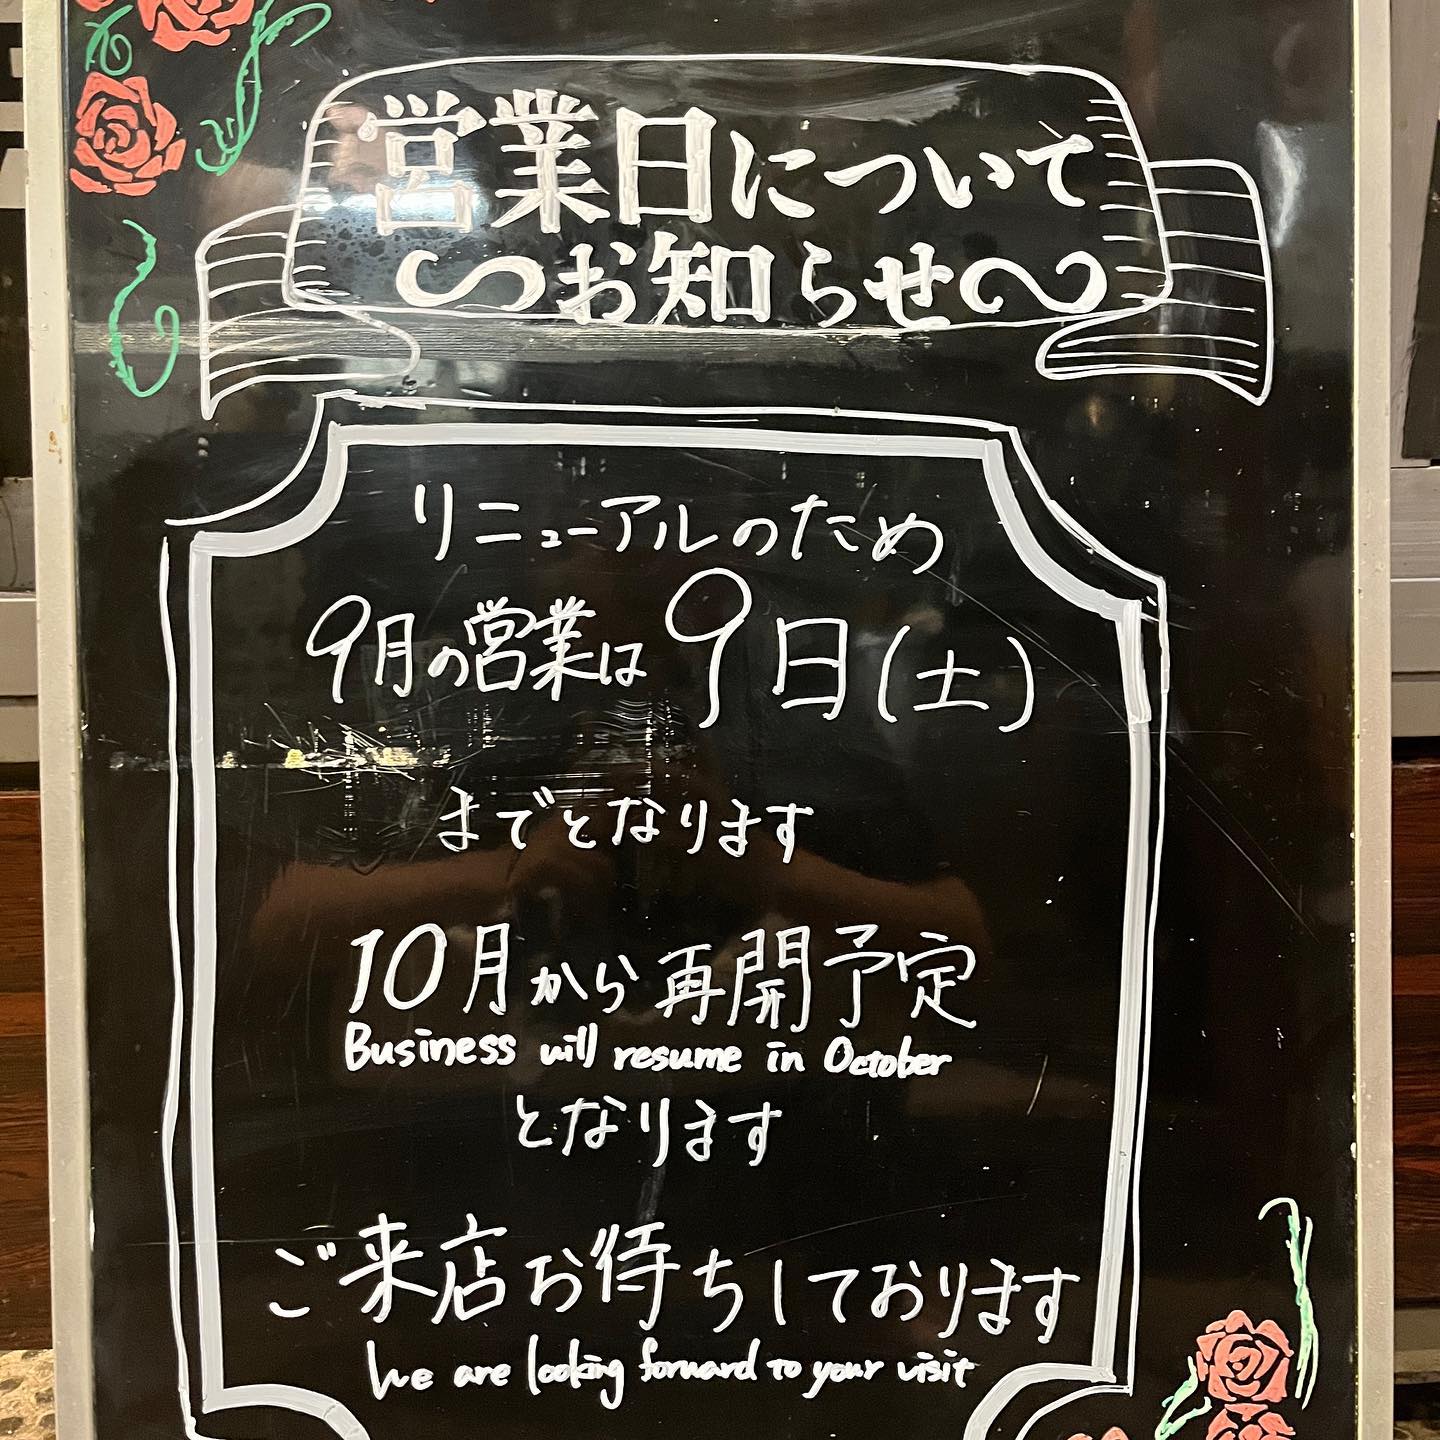 営業日について
〜お知らせ〜
リニューアルのため
9月の営業は9日(土)
までとなります
10月から再開予定
Business will resume in October
となります
ご来店お待ちしております
We are looking forward to your visit